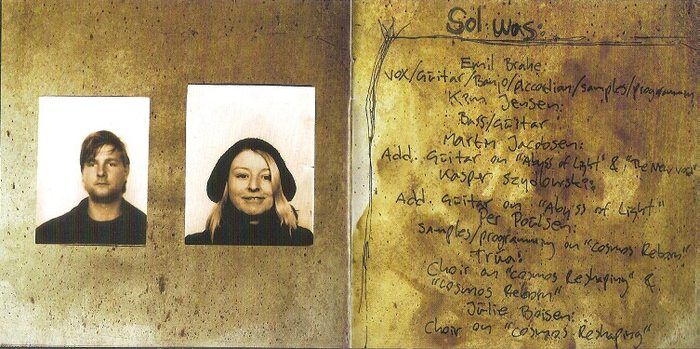 Sol was:
Emil Brahe:
vox/Guitar/Banjo/Accordian/samples/programming
Kim Jensen:
Bass/Guitar
Martin Jacobsen:
Add. Guitar on "Abyss of Light" & "The New
Kasper
Add. Guitar on "Abyss of Light"
Per
Samples/programming on "Cosmos Reborn"
Choir on "Cosmos Reshaping" &
"Cosmos Reborn"
Julie Boisen:
Choir on "Cosmos Reshaping"